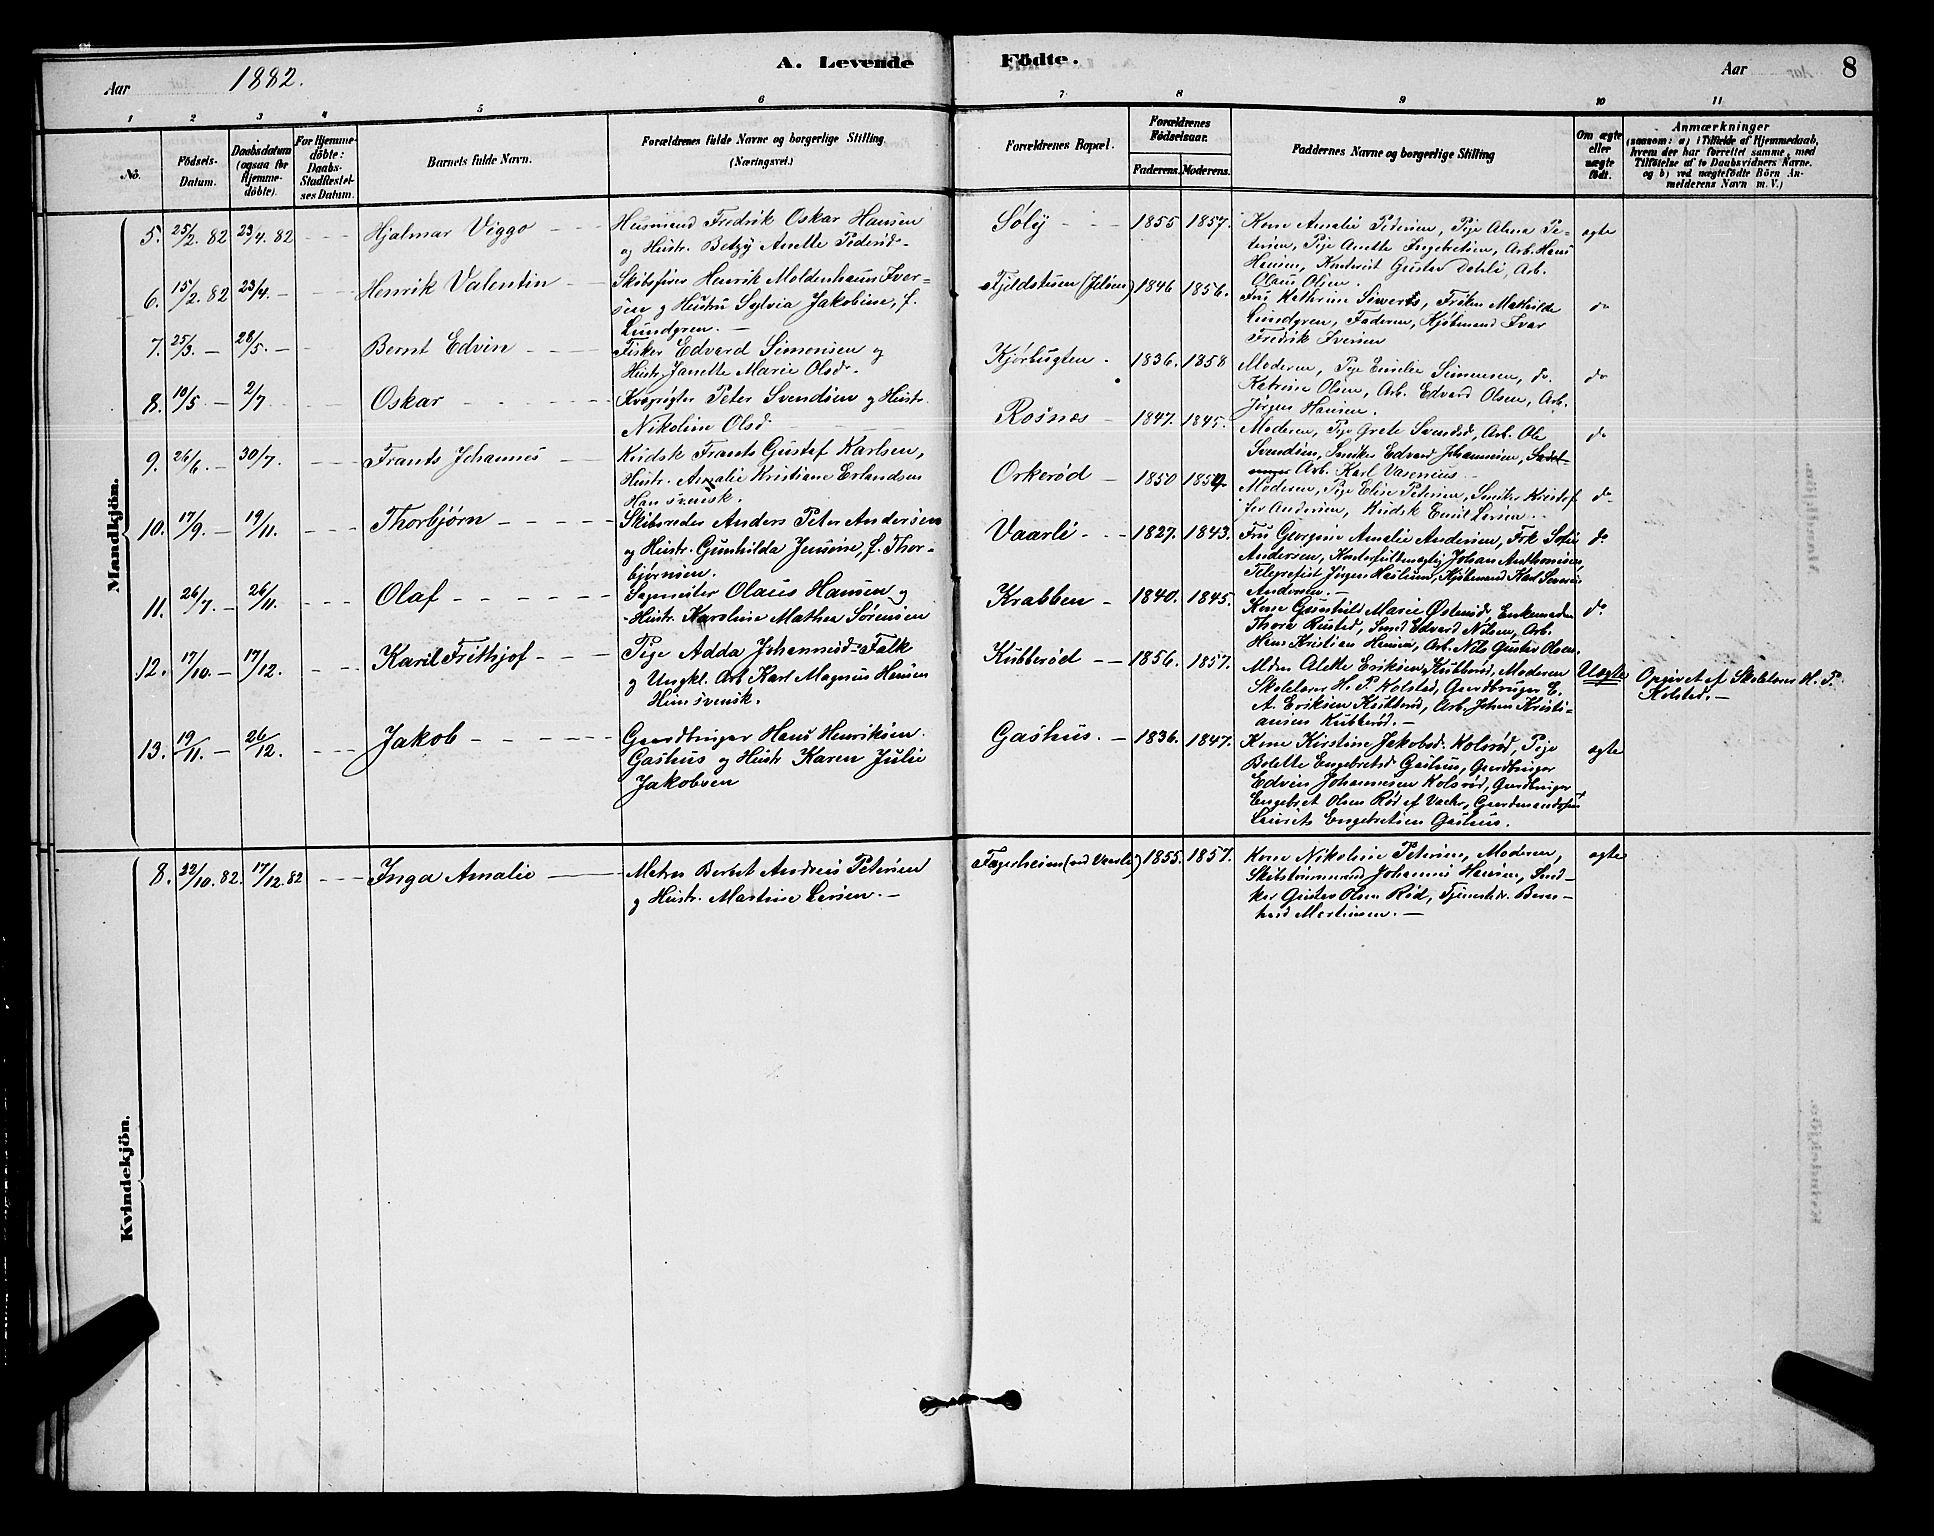 Aar 1882. A. Levende Födte. Aar 8
1 2 3 4 5 6 7 8 9 10 11
No. Födsels-Datum. Daabsdatum (ogsaa for Hjemmedöbte). For Hjemmedöbte: Daabs-Stadfæstelses Datum. Barnets fulde Navn. Forældrenes fulde Navne og borgerlige Stilling (Næringsvei.) Forældrenes Bopæl. Forældrenes Födselsaar. Faderens. Moderens. Faddernes Navne og borgerlige Stilling Om ægte eller uægte födt. Anmærkninger (saasom: a) i Tilfælde af Hjemmedaab, hvem der har forrettet samme, med Tilföielse af to Daabsvidners Navne, og b) ved uægtefödte Börn Anmelderens Navn m. V.)
Mandkjön.
5. 25/2 82 23/4 82 Hjalmar Viggo Husmand Fredrik Oskar Hansen
og Hustr. Betzy Anette Pedersd. Søly 1855 1857. Kone Amalie Pedersen, Pige Alma Petersen, Pige Anette Ingebretsen, Arb. Hans
Hansen, Gustav Dahle, Arb.
Olaus Olsen. ægte
6. 15/2 82 23/4 Henrik Valentin Skibsfører Henrik Moldenhauer Iversen
og Hustru Sylvia Jakobine, f.
Lundgren. Fjeldstuen (Jeløen) 1846 1856. Fru Kathrine Siwerts, Frøken Mathilde
Lundgren, Faderen, Kjøbmand Ivar
Fredrik Iversen do
7. 25/3 28/5 Bernt Edvin Fisker Edvard Simonsen og
Hustr. Janette Marie Olsdr. Kjørbugten 1836. 1858 Moderen, Pige Emilie Simensen, do.
Katrine Olsen, Arb. Edvard Olsen, Arb.
Jørgen Hansen. do
8. 10/5 2/7 Oskar Peter Svendsen og Hustr.
Nikoline Olsd Rosnæs 1847. 1845. Moderen, Pige Grete Svendsd, Arb. Ole
Svendsen, Snedker Edvard Johannesen,
Arb. Karl Vasenius do
9. 26/6 30/7. Frants Johannes Kudsk Frants Gustaf Karlsen,
Hustr. Amalie Kristiane Erlandsen
Han svensk. Orkerød 1850 1854. Moderen, Pige Elise Petersen, Snedker Kristoffer Andersen, Kudsk Emil Larsen do
10. 17/9 19/11. Thorbjørn Skibsreder Anders Peter Andersen
og Hustr. Gunhilda Jensine, f. Thorbjørnsen. Vaarli 1827. 1843. Fru Georgine Amalie Andersen, Frk Sofie
Andersen, Johan Anthonisen,
Telegrafist Jørgen Haslum, Kjøbmand Karl Severin
Andersen. do
11. 26/7 26/11. Olaf Sagmester Olaus Hansen og
Hustr. Karoline Mathea Sørensen Krabben 1840. 1845. Kone Gunhild Marie Enkemadm
Thora Rustad, Smed Edvard Nilsen, Arb.
Hans Kristian Hansen, Arb. Nils Gustav Olsen. do
12. 17/10 17/12. Karil Frithjof Pige Adda Johannesd. Falk
og Ungkl. Arb Karl Magnus Hansen
Hun svensk. Kubberød 1856. 1857. Mdm Alette Eriksen Kubberød, Moderen
Skolelærer H. P. Kolstad, Gaardbruger E.
A. Eriksen Kubberød, Arb. Johan Kristiansen Kubberød. Uægte Opgivet af Skolelærer H. P.
Kolstad.
13. 19/11. 26/12. Jakob Gaardbruger Hans Henriksen
Gashus og Hustr Karen Julie
Jakobsen Gashus. 1836. 1847. Kone Kirstine Jakobsd. Kolsrød, Pige
Bolette Engebretsd Gashus, Gaardbruger
Edvin Johannesen Kolsrød, Gaardbruger
Engebret Olsen Rød af Vaaler, Gaardmandssøn
Laurits Engebretsen Gashus. ægte
Kvindekjön.
8. 22/10. 82. 17/12. 82 Inga Amalie Matros Bernt Andreas Petersen
og Hustr. Martine Larsen. Fagerheim (ved Vaarli) 1855. 1857. Kone Nikoline Petersen, Moderen,
Skibstømmermand Johannes Hansen, Snedker Gustav Olsen Rød, Tjenestdr. Bernhard Martinsen. ægte